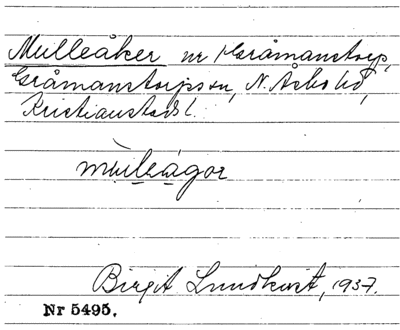 Mulleåker nr 1 Gråmanstorp,
Gråmanstorps sn, N. Åsbo hd,
Kristianstads l.
mùlleågor
Birgit Lundkvist, 1937.
Nr 5495.